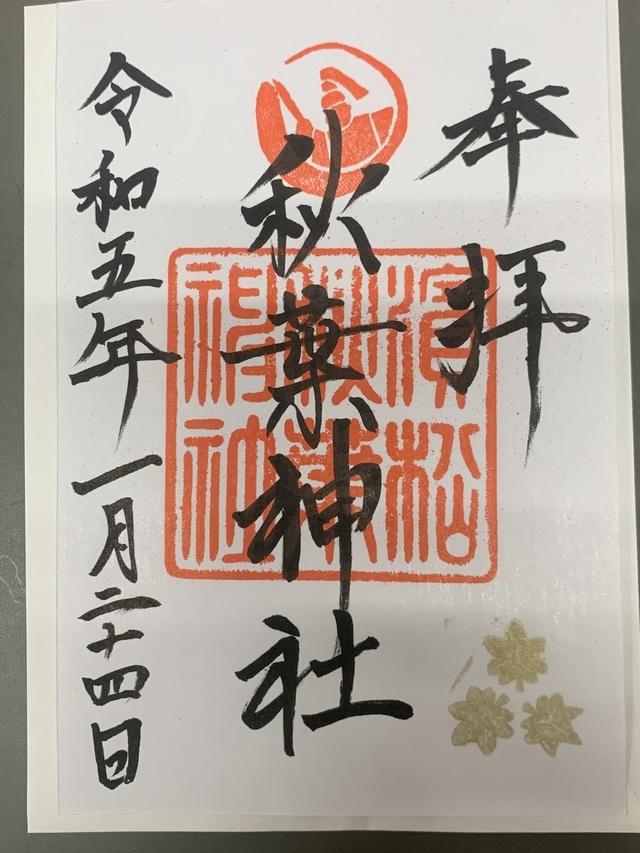 奉拝
秋葉神社
令和五年一月二十四日
濱松
秋葉
神社